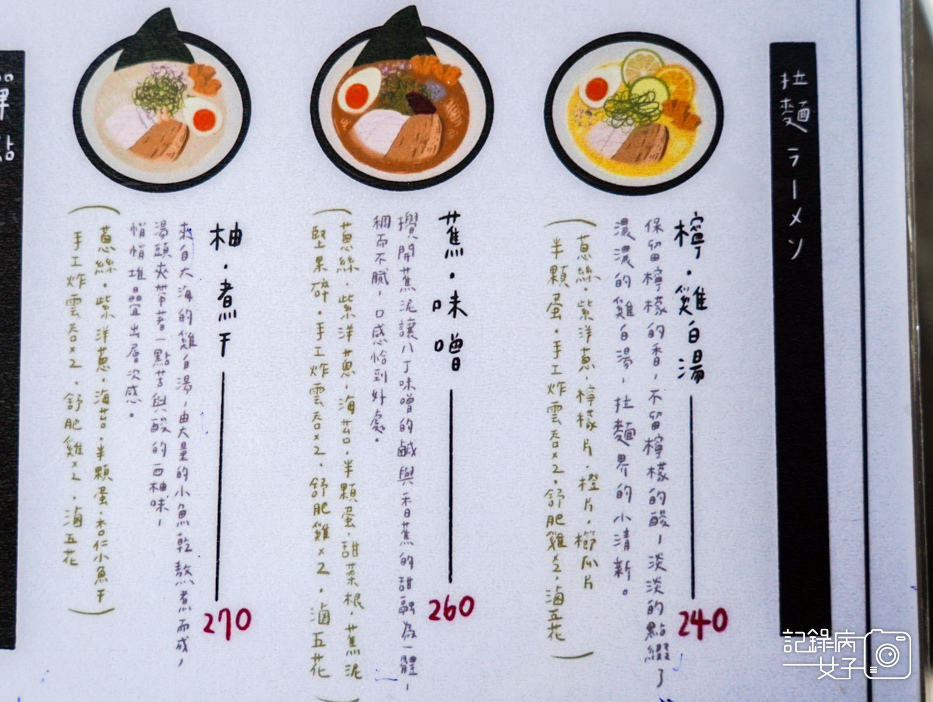 拉麵 ラーメン
檸・雞白湯
240
保留檸檬的香，不留檸檬的酸，淡淡的點綴了
濃濃的雞白湯，拉麵界的小清新。
（蔥絲．紫洋蔥．檸檬片．橙片．櫛瓜片
半顆蛋．手工炸雲吞×2．舒肥雞×2．滷五花）
蕉・味噌
260
攪開蕉泥讓八丁味噌的鹹與香蕉的甜融為一體，
稠而不膩，口感恰到好處。
（蔥絲．紫洋蔥．海苔．半顆蛋．甜菜根．蕉泥
堅果碎．手工炸雲吞×2．舒肥雞×2．滷五花）
柚・煮干
270
來自大海的雞白湯，由大量的小魚乾熬煮而成，
湯頭夾帶著一點苦與酸的西柚味，
悄悄堆疊出層次感。
（蔥絲．紫洋蔥．海苔．半顆蛋．杏仁小魚干
手工炸雲吞×2．舒肥雞×2．滷五花）
點
記錄病
女子